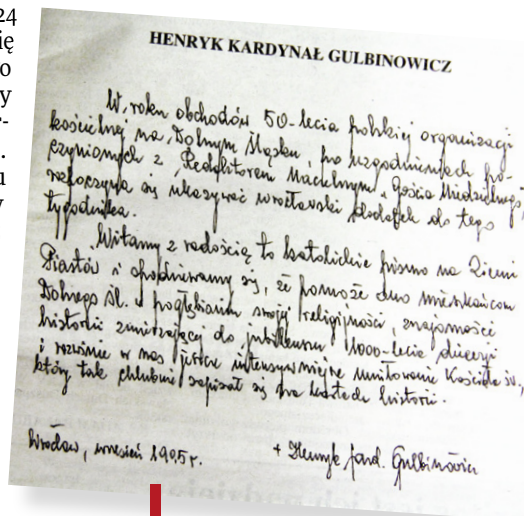 24
ię
o
y
-
.
u
y
HENRYK KARDYNAŁ GULBINOWICZ
W roku obchodów 50-lecia polskiej organizacji
kościelnej na Dolnym Śląsku, po uzgodnieniach po-
czynionych z Redaktorem Naczelnym „Gościa Niedzielnego"
rozpoczyna się ukazywać wrocławski dodatek do tego
tygodnika.
Witamy z radością to katolickie pismo na Ziemi
Piastów i spodziewamy się, że pomoże ono mieszkańcom
Dolnego Śl. w pogłębianiu swojej religijności, znajomości
historii zmierzającej do jubileuszu 1000-lecia diecezji
i rozwinie w nas jeszcze intensywniejsze umiłowanie Kościoła św.,
który tak chlubnie zapisał się na kartach historii.
Wrocław, wrzesień 1995 r.
+ Henryk Kard. Gulbinowicz